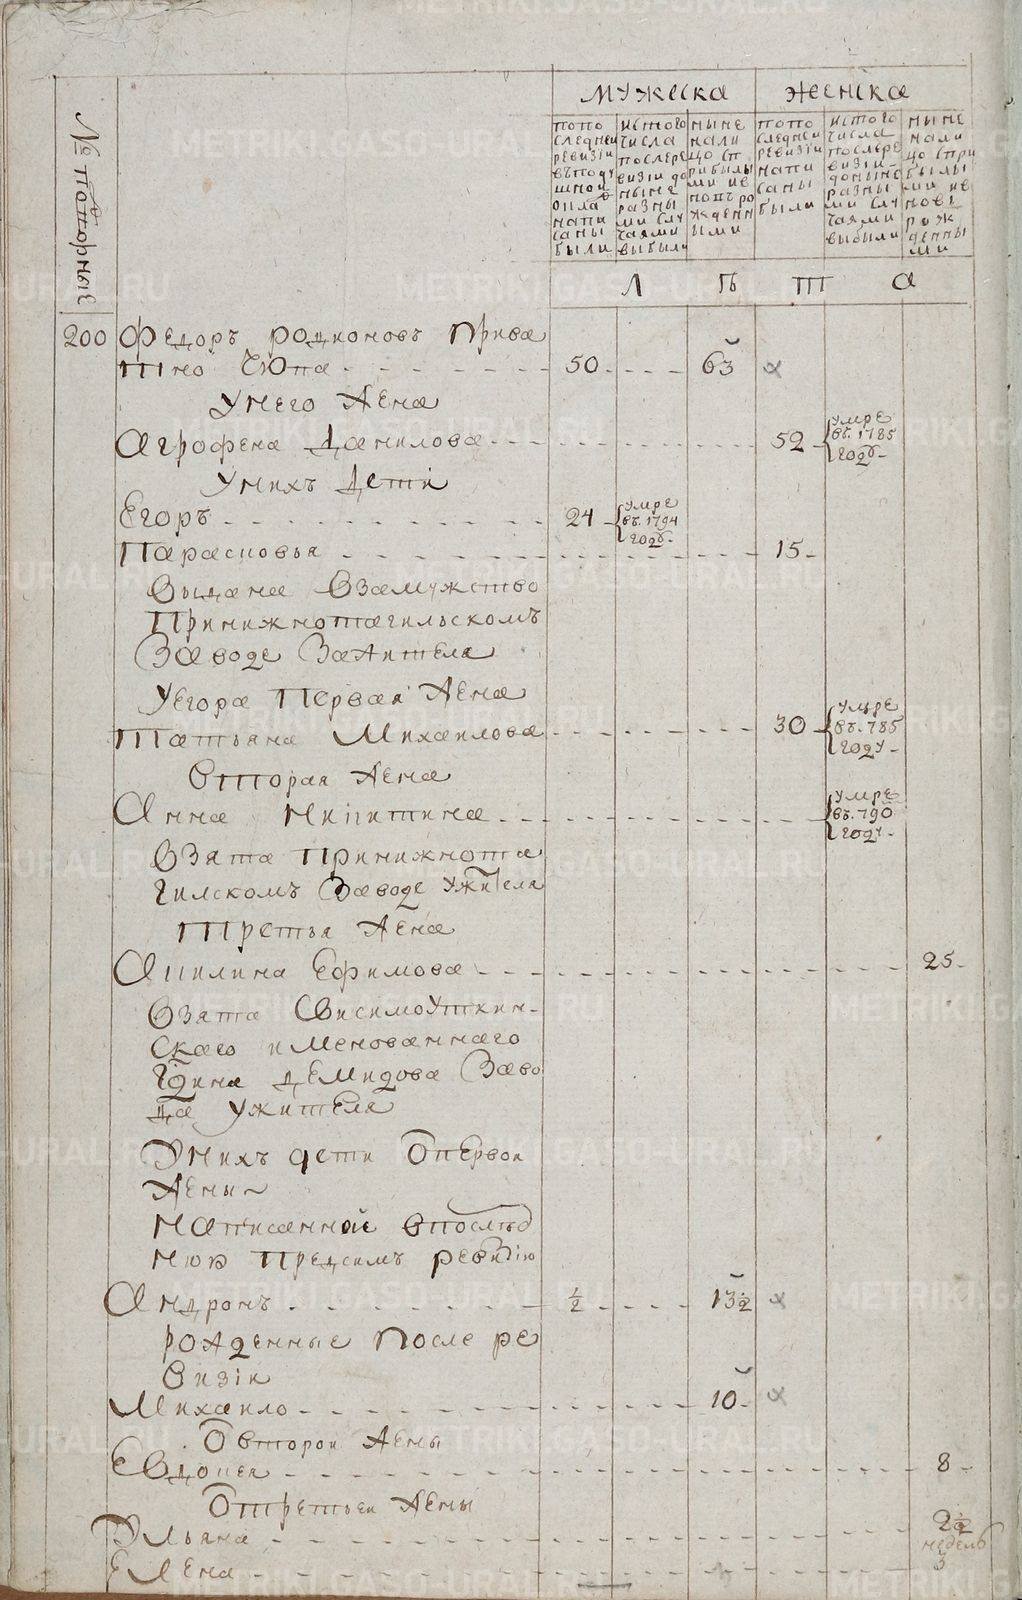 мужеска женска
№ поторные
попо следней ревизіи въподу шной окладъ написаны были
истого числа послере визіи до ныне разны ми слу чаями выбыли
ныне нали цо сп рибылы ми не новъро жденн ыми
попо следней ревизіи напи саны были
истого числа послере визіи доныне разны ми слу чаями выбыли
ныне нали цо спри былы ми не новъ рож денны ми
Л Ъ Т А
200 Федоръ родионовъ прика
тно Чюпа 50. 63
Унего Жена
Агрофена Данилова 52 умре въ. 1785 году
Унихъ Дети
Егоръ 24 умре въ. 1794 году
Парасковья 15
Выдана Взамужство
Принижнотагильскомъ
Заводе Зажителя
УЕгора Первая Жена
Татьяна Михаилова 30 умре въ. 785 году
Вторая Жена
Анна Никитина умре въ. 790 году
Взята Принижнота
гилскомъ Заводе Ужителя
Третья Жена
Акилина Ефимова 25
Взята Свисимоуткин-
скаго имЕнованнаго
Гдина Демидова Заво
да ужителя
Унихъ дети отпервои
Жены
Написаннаи впослед
нюю Предсимъ ревизію
Андронъ ½ 13½
рожденные После ре
визіи
Михаило 10
Овторои Жены
Евдокея 8
Отретьеи Жены
Ульяна 2½
недель
Елена 3
METRIKI.GASO-URAL.RU